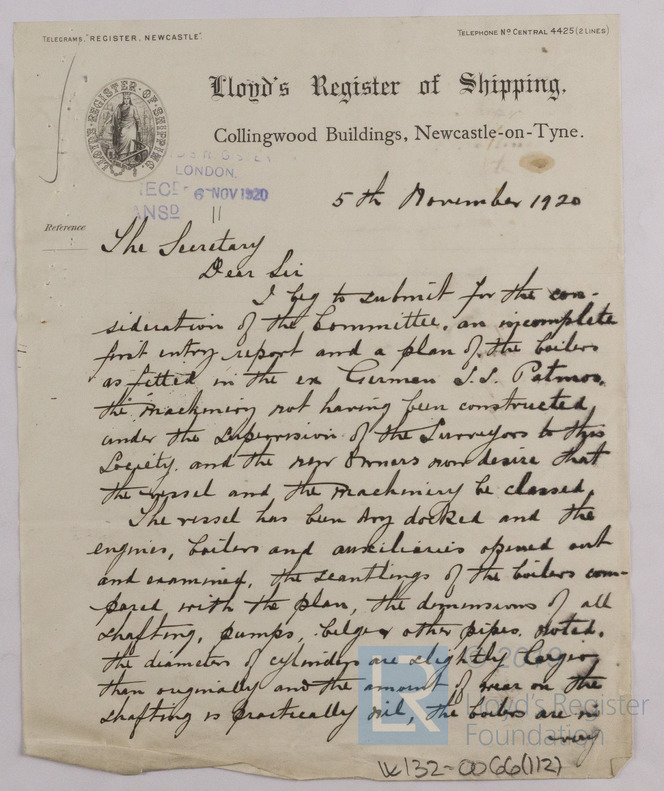 TELEGRAMS, "REGISTER, NEWCASTLE".
TELEPHONE Nº CENTRAL 4425 (2 LINES)
Lloyd's Register of Shipping,
Collingwood Buildings, Newcastle-on-Tyne.
LLOYD'S REGISTER OF SHIPPING
LONDON.
REC'D 6 NOV 1920
ANSD 11
5th November 1920
Reference
The Secretary
Dear Sir
I beg to submit for the con-
sideration of the Committee, an incomplete
first entry report and a plan of the boilers
as fitted in the ex German S.S. Patmos,
the machinery not having been constructed
under the supervision of the Surveyors to this
Society. and the new owners now desire that
the vessel and the machinery be classed.
The vessel has been dry docked and the
engines, boilers and auxiliaries opened out
and examined, the scantlings of the boilers com-
pared with the plan, the dimensions of all
shafting, pumps, bilge & other pipes. noted.
the diameters of cylinders are slightly larger
than originally and the amount of wear on the
shafting is practically nil, the boilers are in
very
© 2019
LR
Lloyd's Register
Foundation
W132-0066(112)